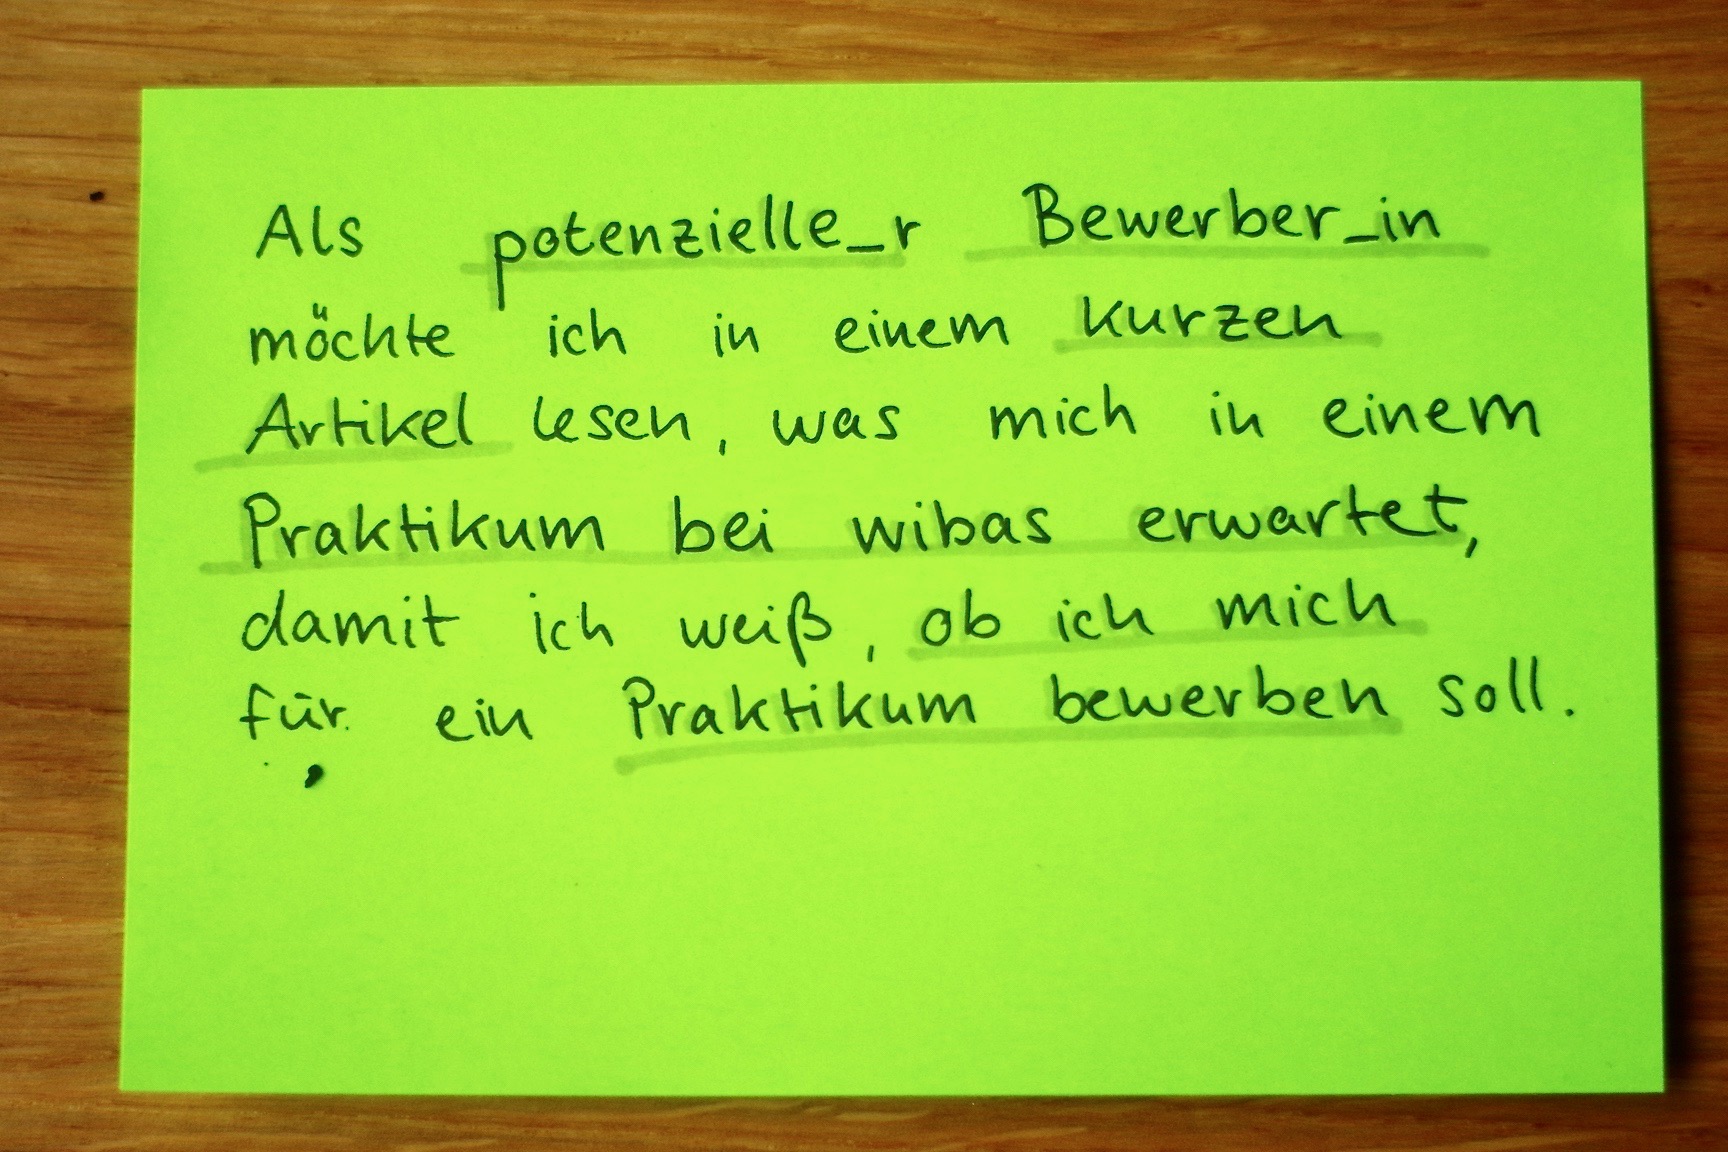 Als potenzielle_r Bewerber_in
möchte ich in einem kurzen
Artikel lesen, was mich in einem
Praktikum bei wibas erwartet,
damit ich weiß, ob ich mich
für ein Praktikum bewerben soll.